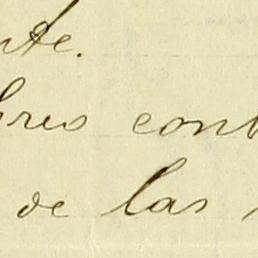 nte.
bres cont
de las